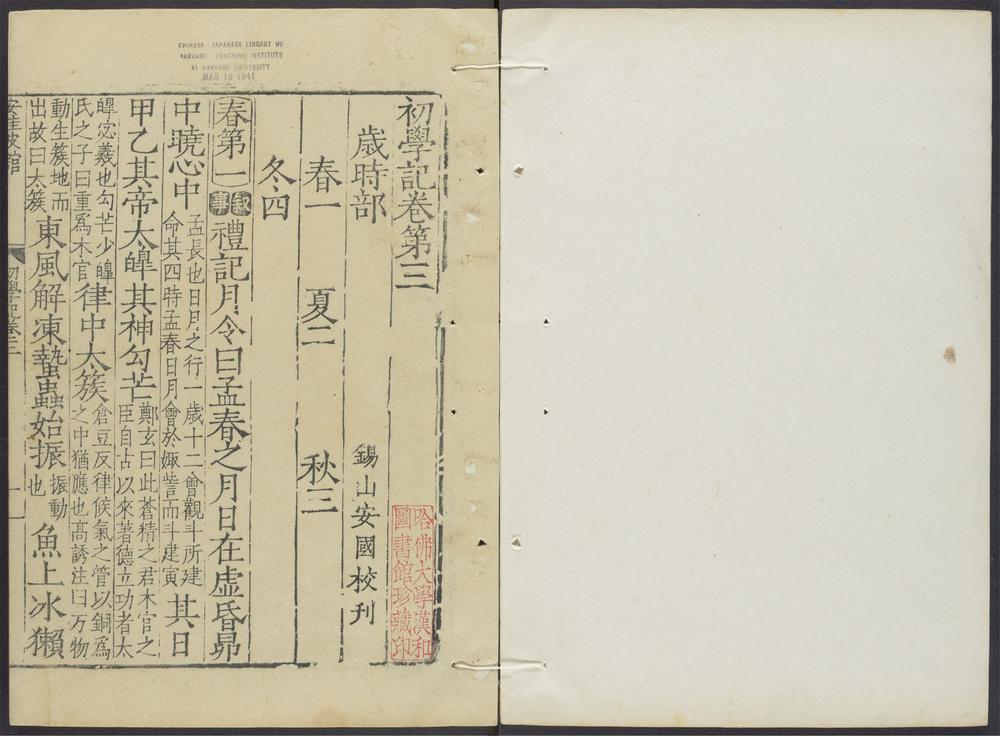 CHINESE - JAPANESE LIBRARY OF
HARVARD - YENCHING INSTITUTE
AT HARVARD UNIVERSITY
MAR 19 1941
初學記卷第三
歳時部
錫山安國校刋
春一 夏二 秋三
冬四
春第一 叙事 禮記月令曰孟春之月日在虛昏昴
中曉心中 孟長也日月之行一歲十二會觀斗所建命其四時孟春日月會於娵訾而斗建寅 其日
甲乙其帝太皥其神勾芒 鄭玄曰此蒼精之君木官之臣自古以來著德立功者太
皥宓羲也勾芒少皥氏之子曰重爲木官 律中太簇 倉豆反律候氣之管以銅爲之中猶應也髙誘注曰万物
動生簇地而出故曰太簇 東風解凍蟄蟲始振 振動也 魚上冰獺
安桂坡館
初學記卷三
一
哈佛大學漢和
圖書館珍藏印